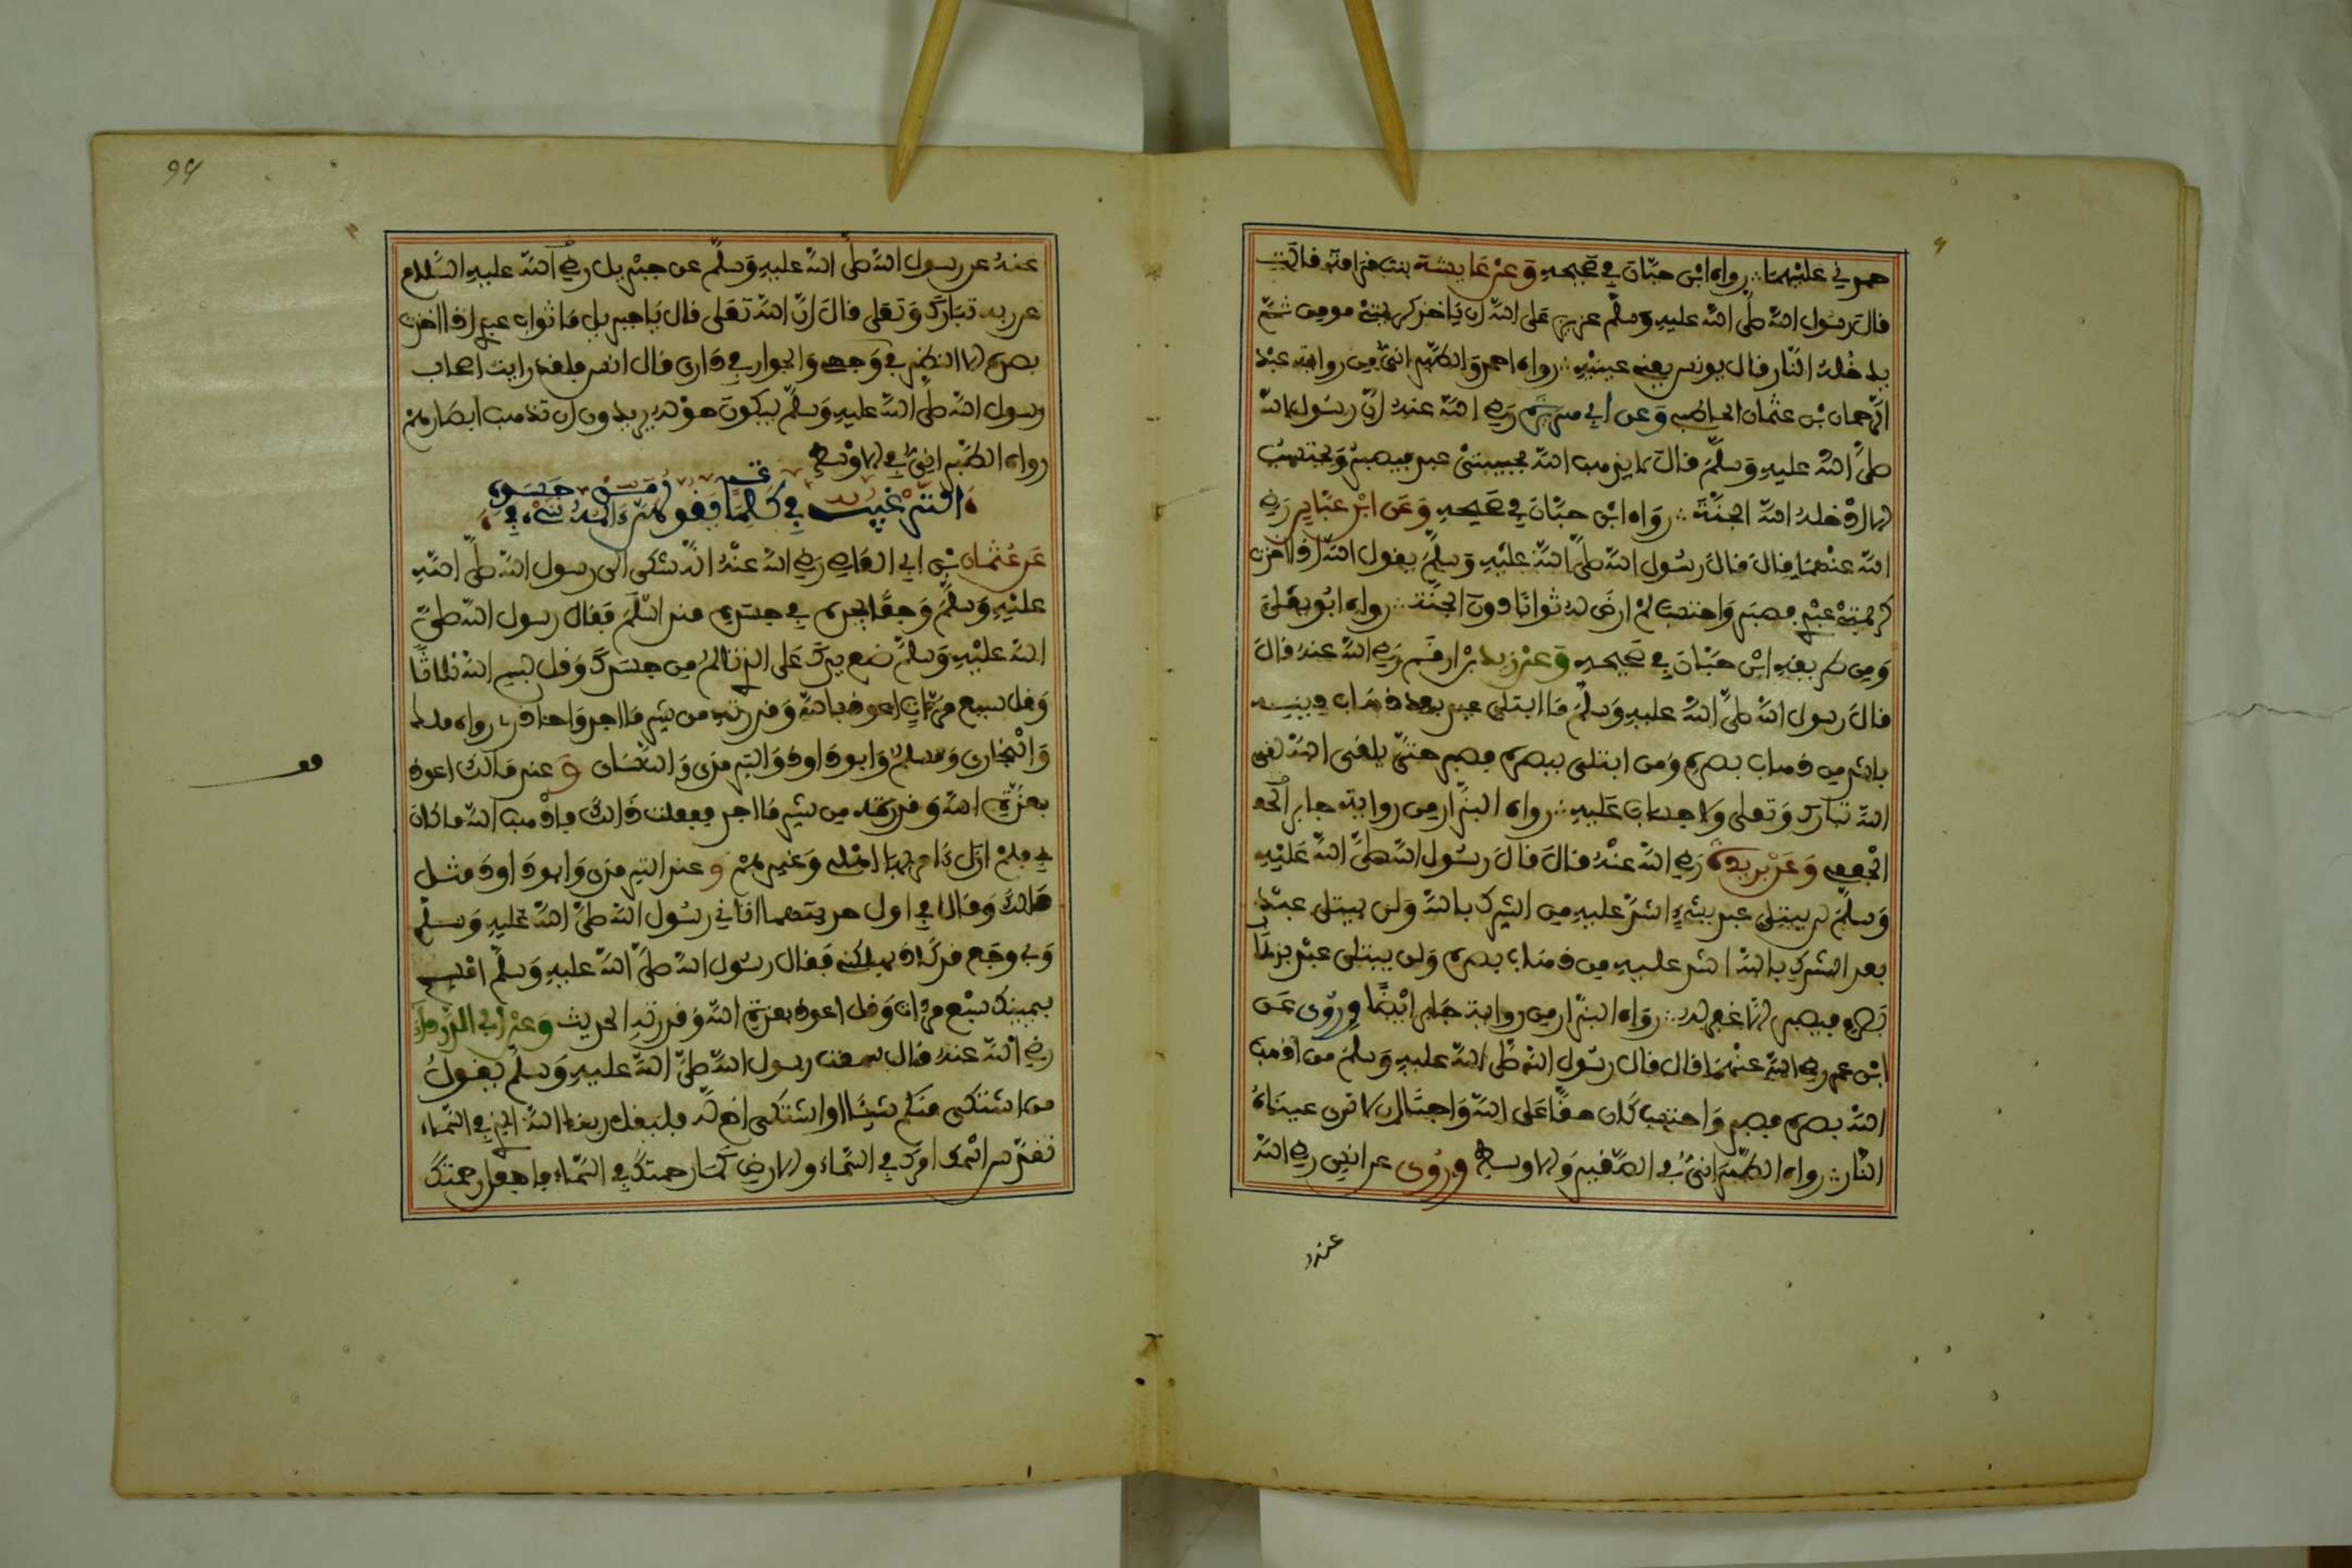 حمدني عليهما رواه ابن حبان في صحيحه وعن عايشة بنت قدامة قالت
قال رسول الله صلى الله عليه وسلم عزيز على الله ان ياخذ كريمتي مومن ثم
يدخله النار قال يونس يعني عينيه رواه احمد والطبراني من رواية عبد
الرحمان بن عثمان الحاطبي وعن ابي هريرة رضي الله عنه ان رسول الله
صلى الله عليه وسلم قال لا يذهب الله بحبيبتي عبد فيصبر ويحتسب
الا ادخله الله الجنة رواه ابن حبان في صحيحه وعن ابن عباس رضي
الله عنهما قال قال رسول الله صلى الله عليه وسلم يقول الله اذا اخذت
كريمتي عبدي فصبر واحتسب لم ارض له ثوابا دون الجنة رواه ابو يعلى
ومن طريقه ابن حبان في صحيحه وعن زيد بن ارقم رضي الله عنه قال
قال رسول الله صلى الله عليه وسلم ما ابتلي عبد بعد ذهاب دينه
باشد من ذهاب بصره ومن ابتلي ببصره فصبر حتى يلقى الله لقي
الله تبارك وتعلى ولا حساب عليه رواه البزار من رواية جابر الجع
الجعفي وعن بريدة رضي الله عنه قال قال رسول الله صلى الله عليه
وسلم لن يبتلى عبد بشيء اشد عليه من الشرك بالله ولن يبتلى عبد
بعد الشرك بالله اشد عليه من ذهاب بصره ولن يبتلى عبد بذهاب
بصره فيصبر الا غفر له رواه البزار من رواية جابر ايضا وروى عن
ابن عمر رضي الله عنهما قال قال رسول الله صلى الله عليه وسلم من اذهب
الله بصره فصبر واحتسب كان حقا على الله واجبا ان لا ترى عيناه
النار رواه الطبراني في الصغير والاوسط وروى عن انس رضي الله
عنه
94
عنه عن رسول الله صلى الله عليه وسلم عن جبريل رضي الله عليه السلام
عن ربه تبارك وتعلى قال ان الله تعلى قال يا جبريل ما ثواب عبدي اذا اخذت
بصره الا النظر في وجهي والجوار في داري قال انس فلقد رايت اصحاب
رسول الله صلى الله عليه وسلم يبكون حوله يريدون ان تذهب ابصارهم
رواه الطبراني في الاوسط
الترغيب في كلمات يقولهن من المه شيء في جسده
عن عثمان بن ابي العاص رضي الله عنه انه شكى الى رسول الله صلى الله
عليه وسلم وجعا يجده في جسده منذ اسلم فقال رسول الله صلى
الله عليه وسلم ضع يدك على الذي تالم من جسدك وقل بسم الله ثلاثا
وقل سبع مرات اعوذ بالله وقدرته من شر ما اجد واحاذر رواه مالك
والبخاري ومسلم وابو داود والترمذي والنسائي وعند مالك اعوذ
بعزة الله وقدرته من شر ما اجد ففعلت ذالك فاذهب الله ما كان
بي فلم ازل ءامر بها اهلي وغيرهم وعند الترمذي وابو داود مثل
ذالك وقالا في اول حديثهما اتاني رسول الله صلى الله عليه وسلم
وبي وجع قد كاد يهلكني فقال رسول الله صلى الله عليه وسلم امسح
بيمينك سبع مرات وقل اعوذ بعزة الله وقدرته الحديث وعن ابي الدرداء
رضي الله عنه قال سمعت رسول الله صلى الله عليه وسلم يقول
من اشتكى منكم شيئا او اشتكى اخ له فليقل ربنا الله الذي في السماء
تقدس اسمك امرك في السماء والارض كما رحمتك في السماء فاجعل رحمتك